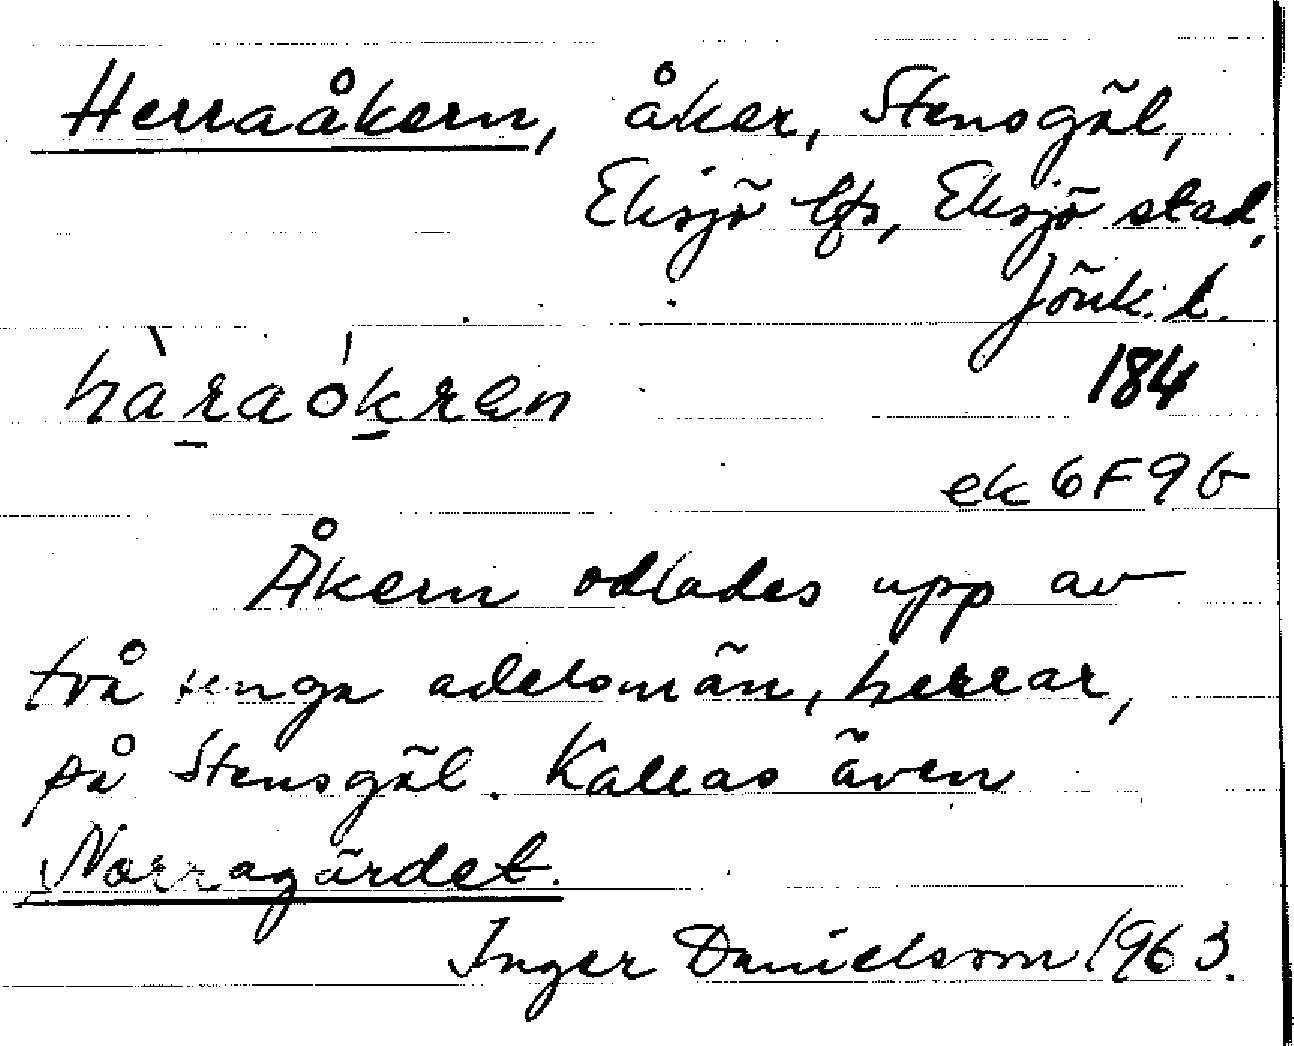 Herraåkern, åker, Stensgäl,
Eksjö lfs, Eksjö stad,
Jönk. l.
hàraókren
184
ek 6F9b
Åkern odlades upp av
två unga adelsmän, herrar,
på Stensgäl. Kallas även
Norragärdet.
Inger Danielsson 1963.